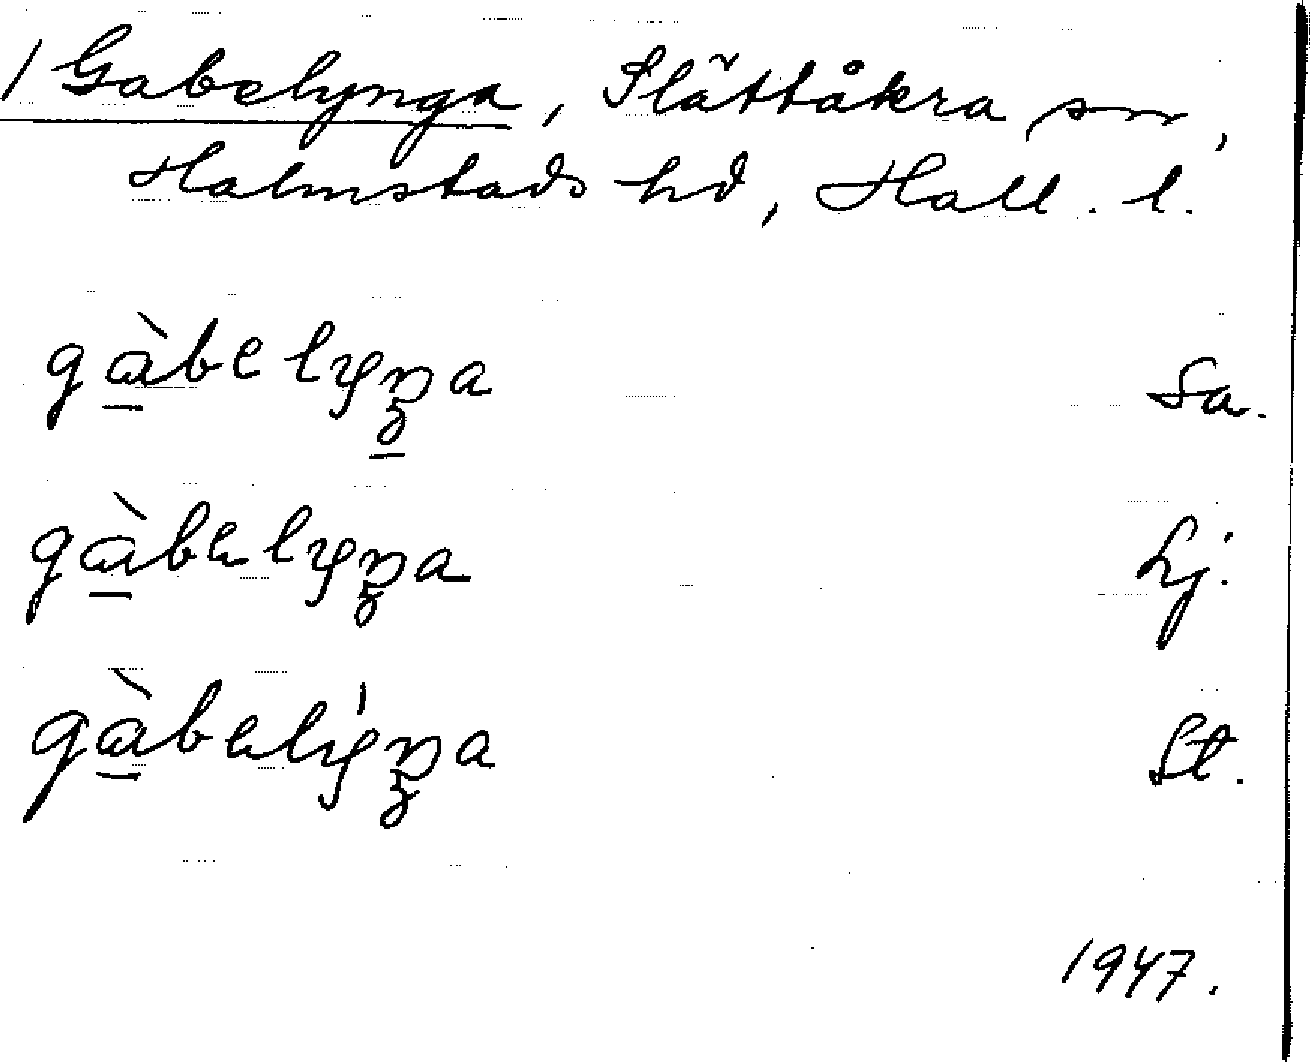 / Gabelynga, Slättåkra sn,
Halmstads hd, Hall. l.
gàbelyŋa Sa.
gàbelyŋa Lj.
gàbelýŋa St.
1947.